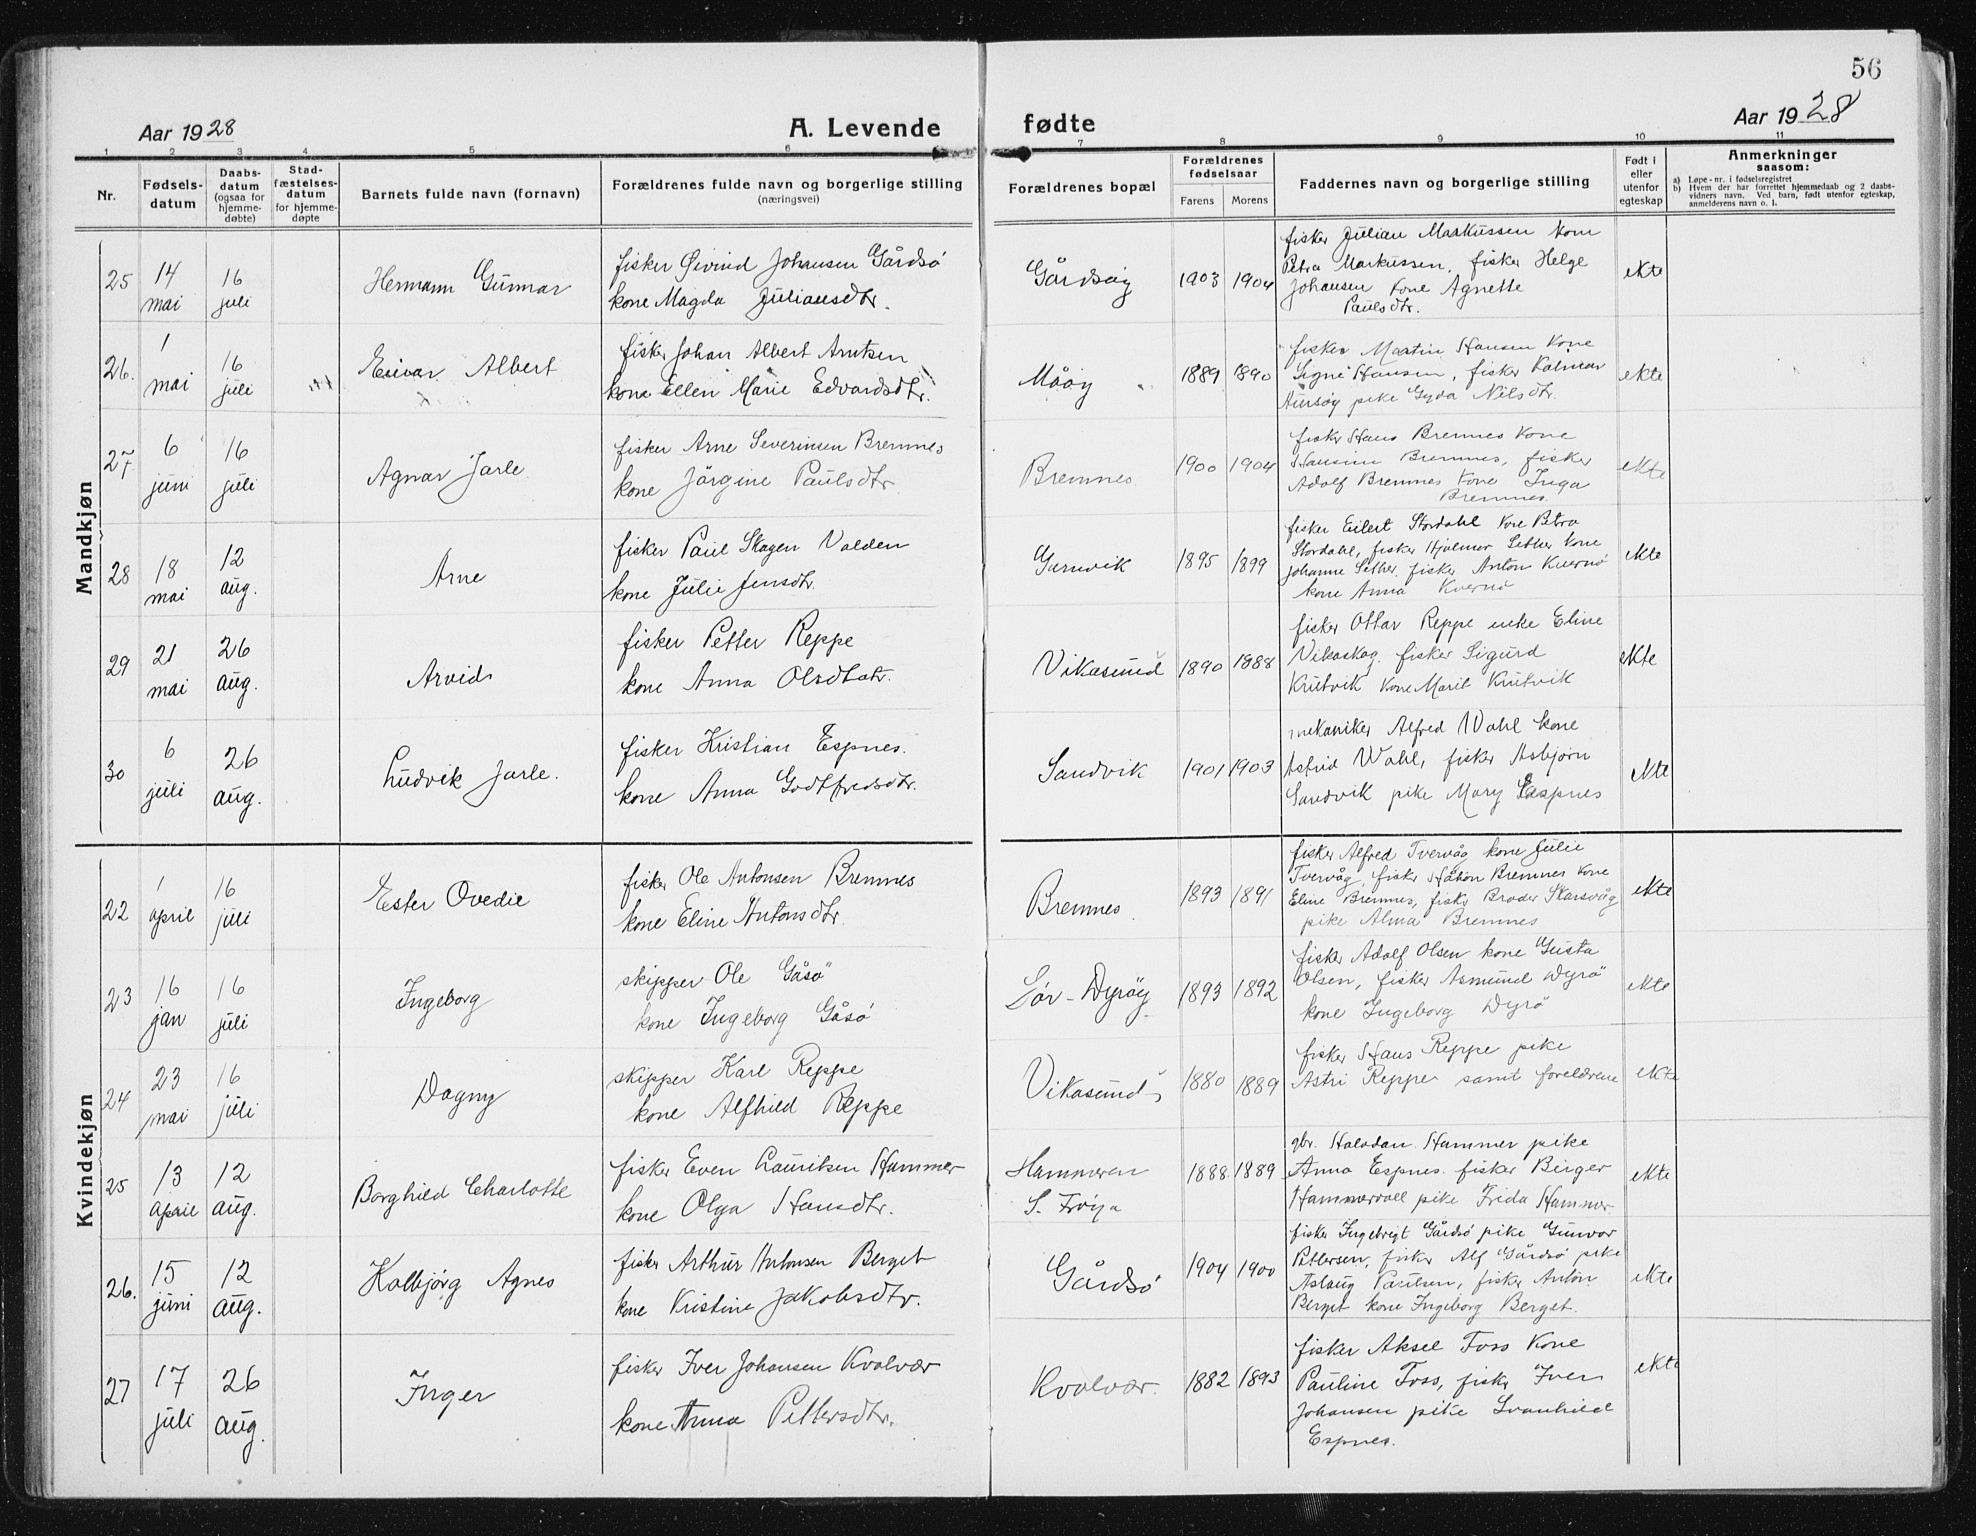 56
Aar 1928
A. Levende
fødte
Aar 1928
1 2 3 4 5 6 7 8 9 10 11
Nr.
Fødsels-
datum
Daabs-
datum
(ogsaa for
hjemme-
døbte)
Stad-
fæstelses-
datum
for hjemme-
døpte
Barnets fulde navn (fornavn)
Forældrenes fulde navn og borgerlige stilling
(næringsvei)
Forældrenes bopæl
Forældrenes
fødselsaar
Farens Morens
Faddernes navn og borgerlige stilling
Født i
eller
utenfor
egteskap
Anmerkninger
saasom:
a) Løpe-nr. i fødselsregistret
b) Hvem der har forrettet hjemmedaab og 2 daabs-
vidners navn. Ved barn, født utenfor egteskap,
anmelderens navn o. l.
Mandkjøn
25
14
mai
16
juli
Hermann Gunnar
fisker Øivind Johansen Gårdsö
kone Magda Juliansdtr.
Gårdsøy
1903 1904
fisker Julian Markussen kone
Petra Markussen, fisker Helge
Johansen kone Agnette
Paulsdtr.
ekte
26.
1
mai
16
juli
Einar Albert
fisker Johan Albert Arntsen
kone Ellen Marie Edvardsdtr.
Måøy
1889 1890
fisker Martin Hansen kone
Signe Hansen, fisker Kalmar
pike Gyda Nilsdtr.
ekte
27
6
juni
16
juli
Agnar Jarle
fisker Arne Severinsen Bremnes
kone Jörgine Paulsdtr
Bremnes
1900 1904
fisker Hans Bremnes kone
Hansine Bremnes, fisker
Adolf Bremnes kone Inga
Bremnes.
ekte
28
18
mai
12
aug.
Arne
fisker Paul Skagen Valden
kone Julie Jensdtr.
Garnvik
1895 1899
fisker Eilert Stordahl kone Petra
Stordahl, fisker Hjalmar Sether kone
Johanne Sether. fisker Anton Kvernö
kone Anna Kvernö
ekte
29
21
mai
26
aug.
Arvid
fisker Petter Reppe
kone Anna Olsdtatr.
Vikasund
1890 1888
fisker Ottar Reppe enke Eline
Vikaskag. fisker Sigurd
Krutvik kone Marit Krutvik
ekte
30
6
juli
26
aug.
Ludvik Jarle.
fisker Kristian Espnes.
kone Anna Godtfredsdtr.
Sandvik
1901 1903
mekaniker Alfred Wahl kone
Astrid Wahl, fisker Asbjørn
Sandvik pike Mary Espnes
ekte
Kvindekjøn
22
1
april
16
juli
Ester Ovedie
fisker Ole Antonsen Bremnes
kone Eline Antonsdtr.
Bremnes
1893 1891
fisker Alfred Tvervåg kone Julie
Tvervåg, fisker Håkon Bremnes kone
Eline Bremnes, fisker Broder Skarsvåg
pike Alma Bremnes
ekte
23
16
jan
16
juli
Ingeborg
skipper Ole Gåsö
kone Ingeborg Gåsö
Sör-Dyröy
1893 1892
fisker Adolf Olsen kone Gusta
Olsen, fisker Asmund Dyrö
kone Ingeborg Dyrö
ekte
24
23
mai
16
juli
Dagny
skipper Karl Reppe
kone Alfhild Reppe
Vikasund
1880 1889
fisker Hans Reppe pike
Astri Reppe samt foreldrene
ekte
25
13
april
12
aug.
Borghild Charlotte
fisker Even Lauritsen Hammer
kone Olga Hansdtr.
Hammeren
S. Fröya
1888 1889
gbr. Halvdan Hammer pike
Anna Espnes. fisker Birger
Hammervoll pike Frida Hammer
ekte
26.
15
juni
12
aug.
Kolbjörg Agnes
fisker Arthur Antonsen Berget
kone Kristine Jakobsdtr.
Gårdsö
1904 1900
fisker Ingebrigt Gårdsö pike Gunvor
Pettersen, fisker Alf Gårdsö pike
Aslaug Paulsen, fisker Anton
Berget kone Ingeborg Berget.
ekte
27
17
juli
26
aug.
Inger
fisker Iver Johansen Kvalvær
kone Anna Pettersdtr.
Kvalvær.
1882 1893
fisker Aksel Foss kone
Pauline Foss, fisker Iver
Johansen pike Svanhild
Espnes.
ekte